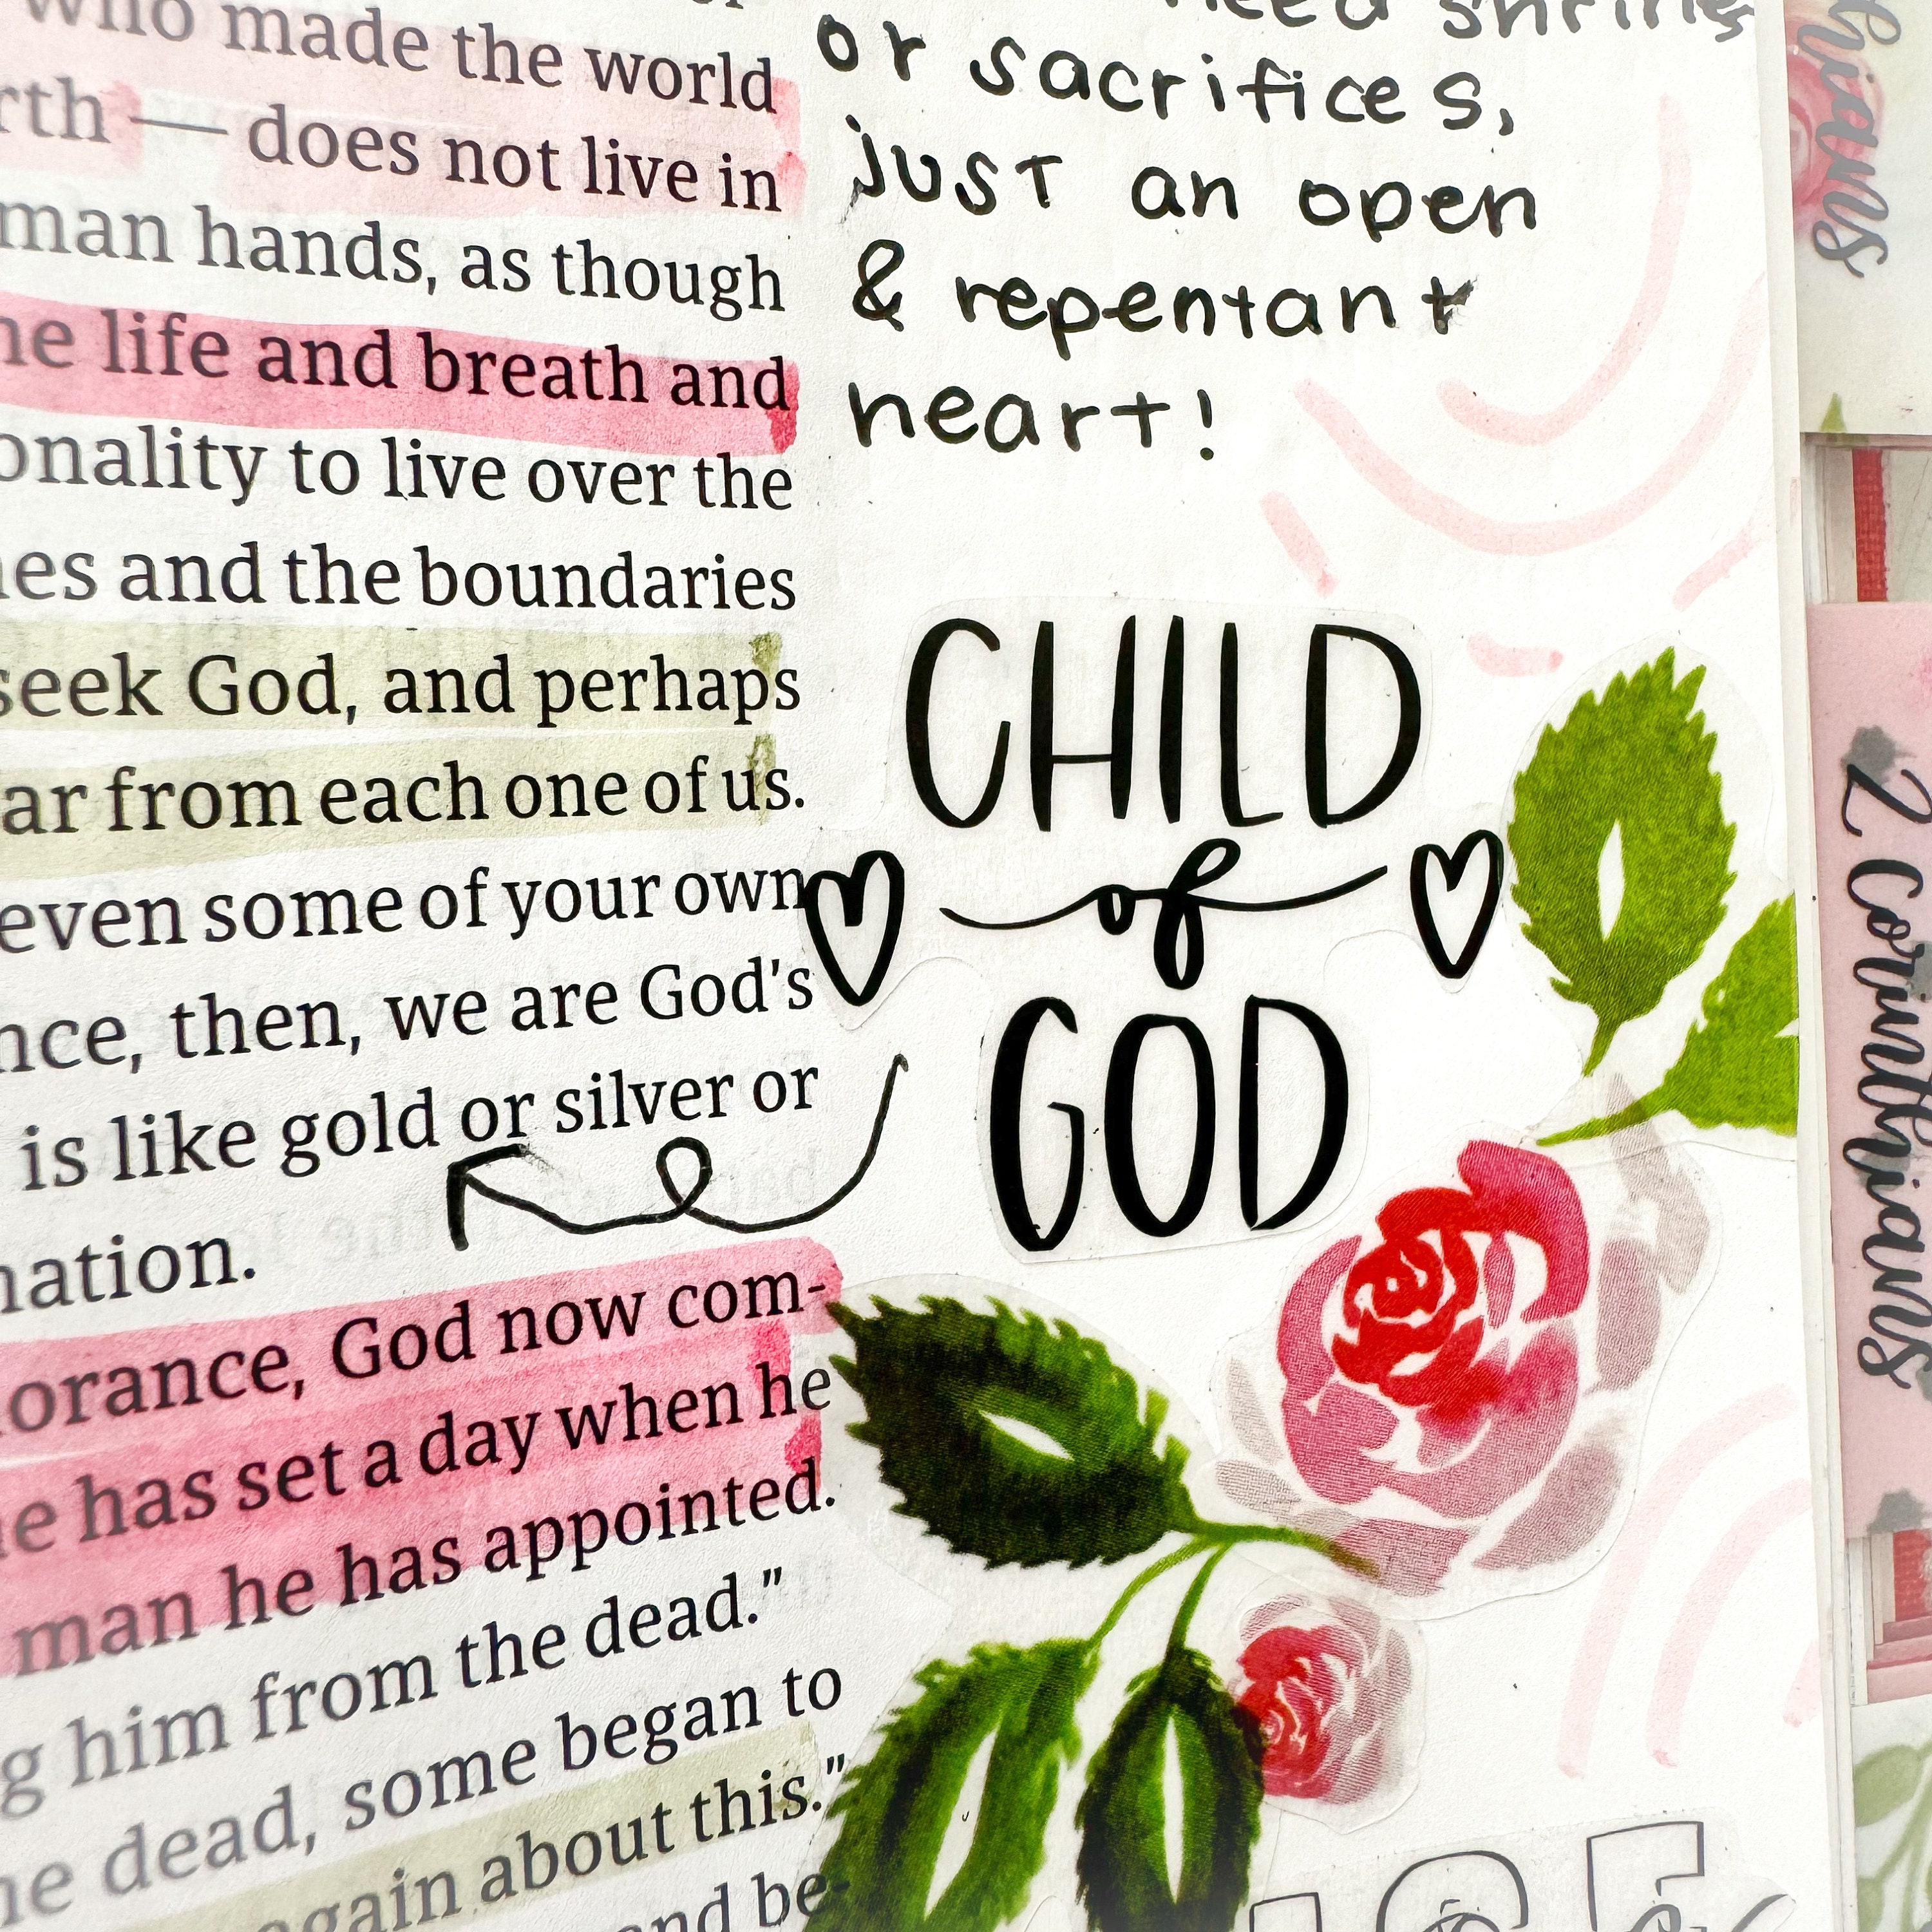 who made the world
— does not live in
man hands, as though
life and breath and
to live over the
and the boundaries
seek God, and perhaps
from each one of us.
even some of your own
then, we are God's
is like gold or silver or
God now com-
has set a day when he
man he has appointed.
him from the dead."
dead, some began to
about this."
be-
need shrines
or sacrifices,
just an open
& repentant
heart!
CHILD
of
GOD
2 Corinthians